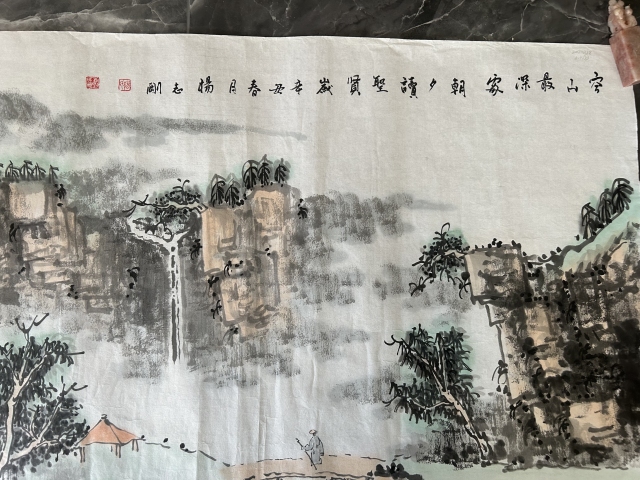 空山最深家朝夕讀聖賢歲辛丑春月楊志剛